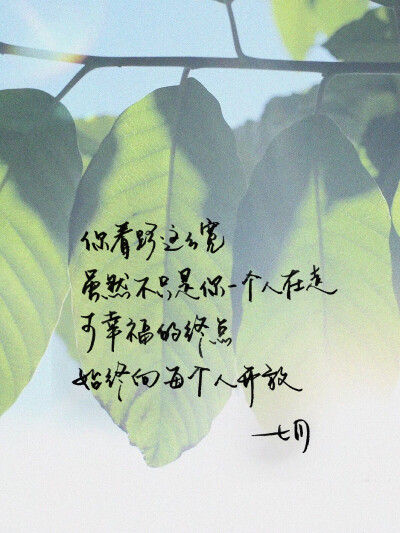 你看路这么宽
虽然不只是你一个人在走
可幸福的终点
始终向每个人开放
一七月